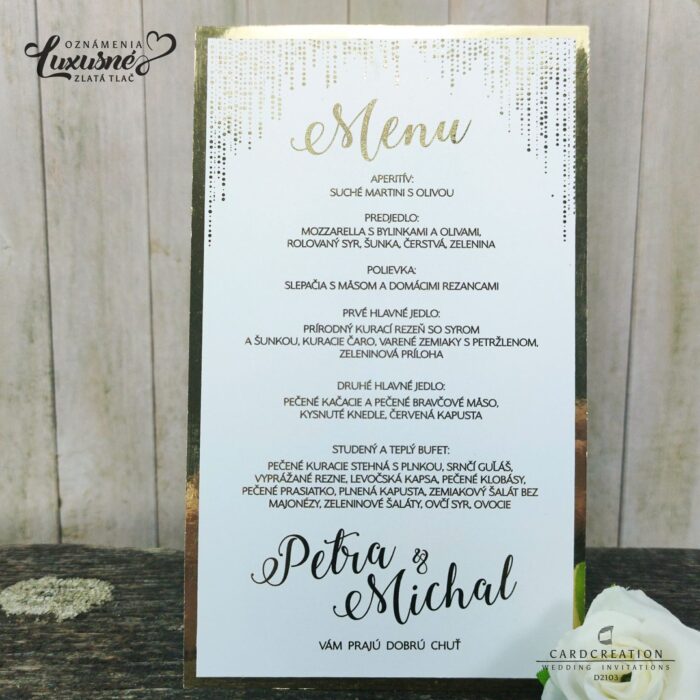 OZNÁMENIA
Luxusné
ZLATÁ TLAČ
Menu
APERITÍV:
SUCHÉ MARTINI S OLIVOU
PREDJEDLO:
MOZZARELLA S BYLINKAMI A OLIVAMI,
ROLOVANÝ SYR, ŠUNKA, ČERSTVÁ, ZELENINA
POLIEVKA:
SLEPAČIA S MÄSOM A DOMÁCIMI REZANCAMI
PRVÉ HLAVNÉ JEDLO:
PRÍRODNÝ KURACÍ REZEŇ SO SYROM
A ŠUNKOU, KURACIE ČARO, VARENÉ ZEMIAKY S PETRŽLENOM,
ZELENINOVÁ PRÍLOHA
DRUHÉ HLAVNÉ JEDLO:
PEČENÉ KAČACIE A PEČENÉ BRAVČOVÉ MÄSO,
KYSNUTÉ KNEDLE, ČERVENÁ KAPUSTA
STUDENÝ A TEPLÝ BUFET:
PEČENÉ KURACIE STEHNÁ S PLNKOU, SRNČÍ GUĽÁŠ,
VYPRÁŽANÉ REZNE, LEVOČSKÁ KAPSA, PEČENÉ KLOBÁSY,
PEČENÉ PRASIATKO, PLNENÁ KAPUSTA, ZEMIAKOVÝ ŠALÁT BEZ
MAJONÉZY, ZELENINOVÉ ŠALÁTY, OVČÍ SYR, OVOCIE
Petra &
Michal
VÁM PRAJÚ DOBRÚ CHUŤ
CARDCREATION
WEDDING INVITATIONS
D2103